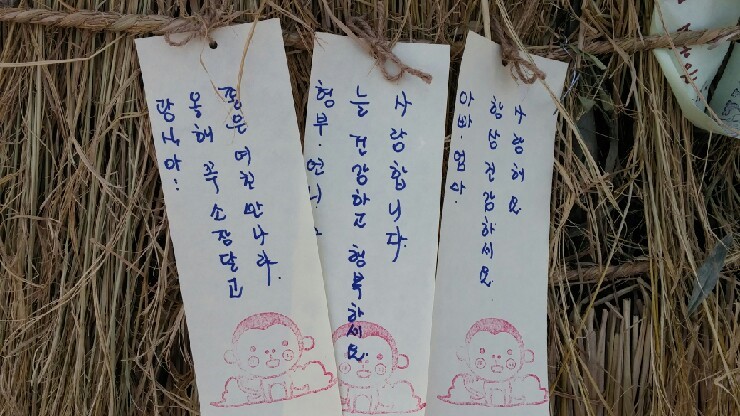 광식아!
올해 꼭 소장달고
좋은 여친 만나라.
형부·언니
늘 건강하고 행복하세요
사랑합니다
아빠 엄마.
항상 건강하세요
사랑해요